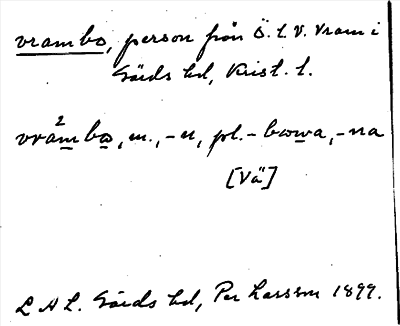 vrambo, person från Ö. l. V. Vram i
Gärds hd, Krist. l.
vra²mbo, m., -n, pl. -bowa, -na
[Vä]
L A L. Gärds hd, Per Larsson 1899.